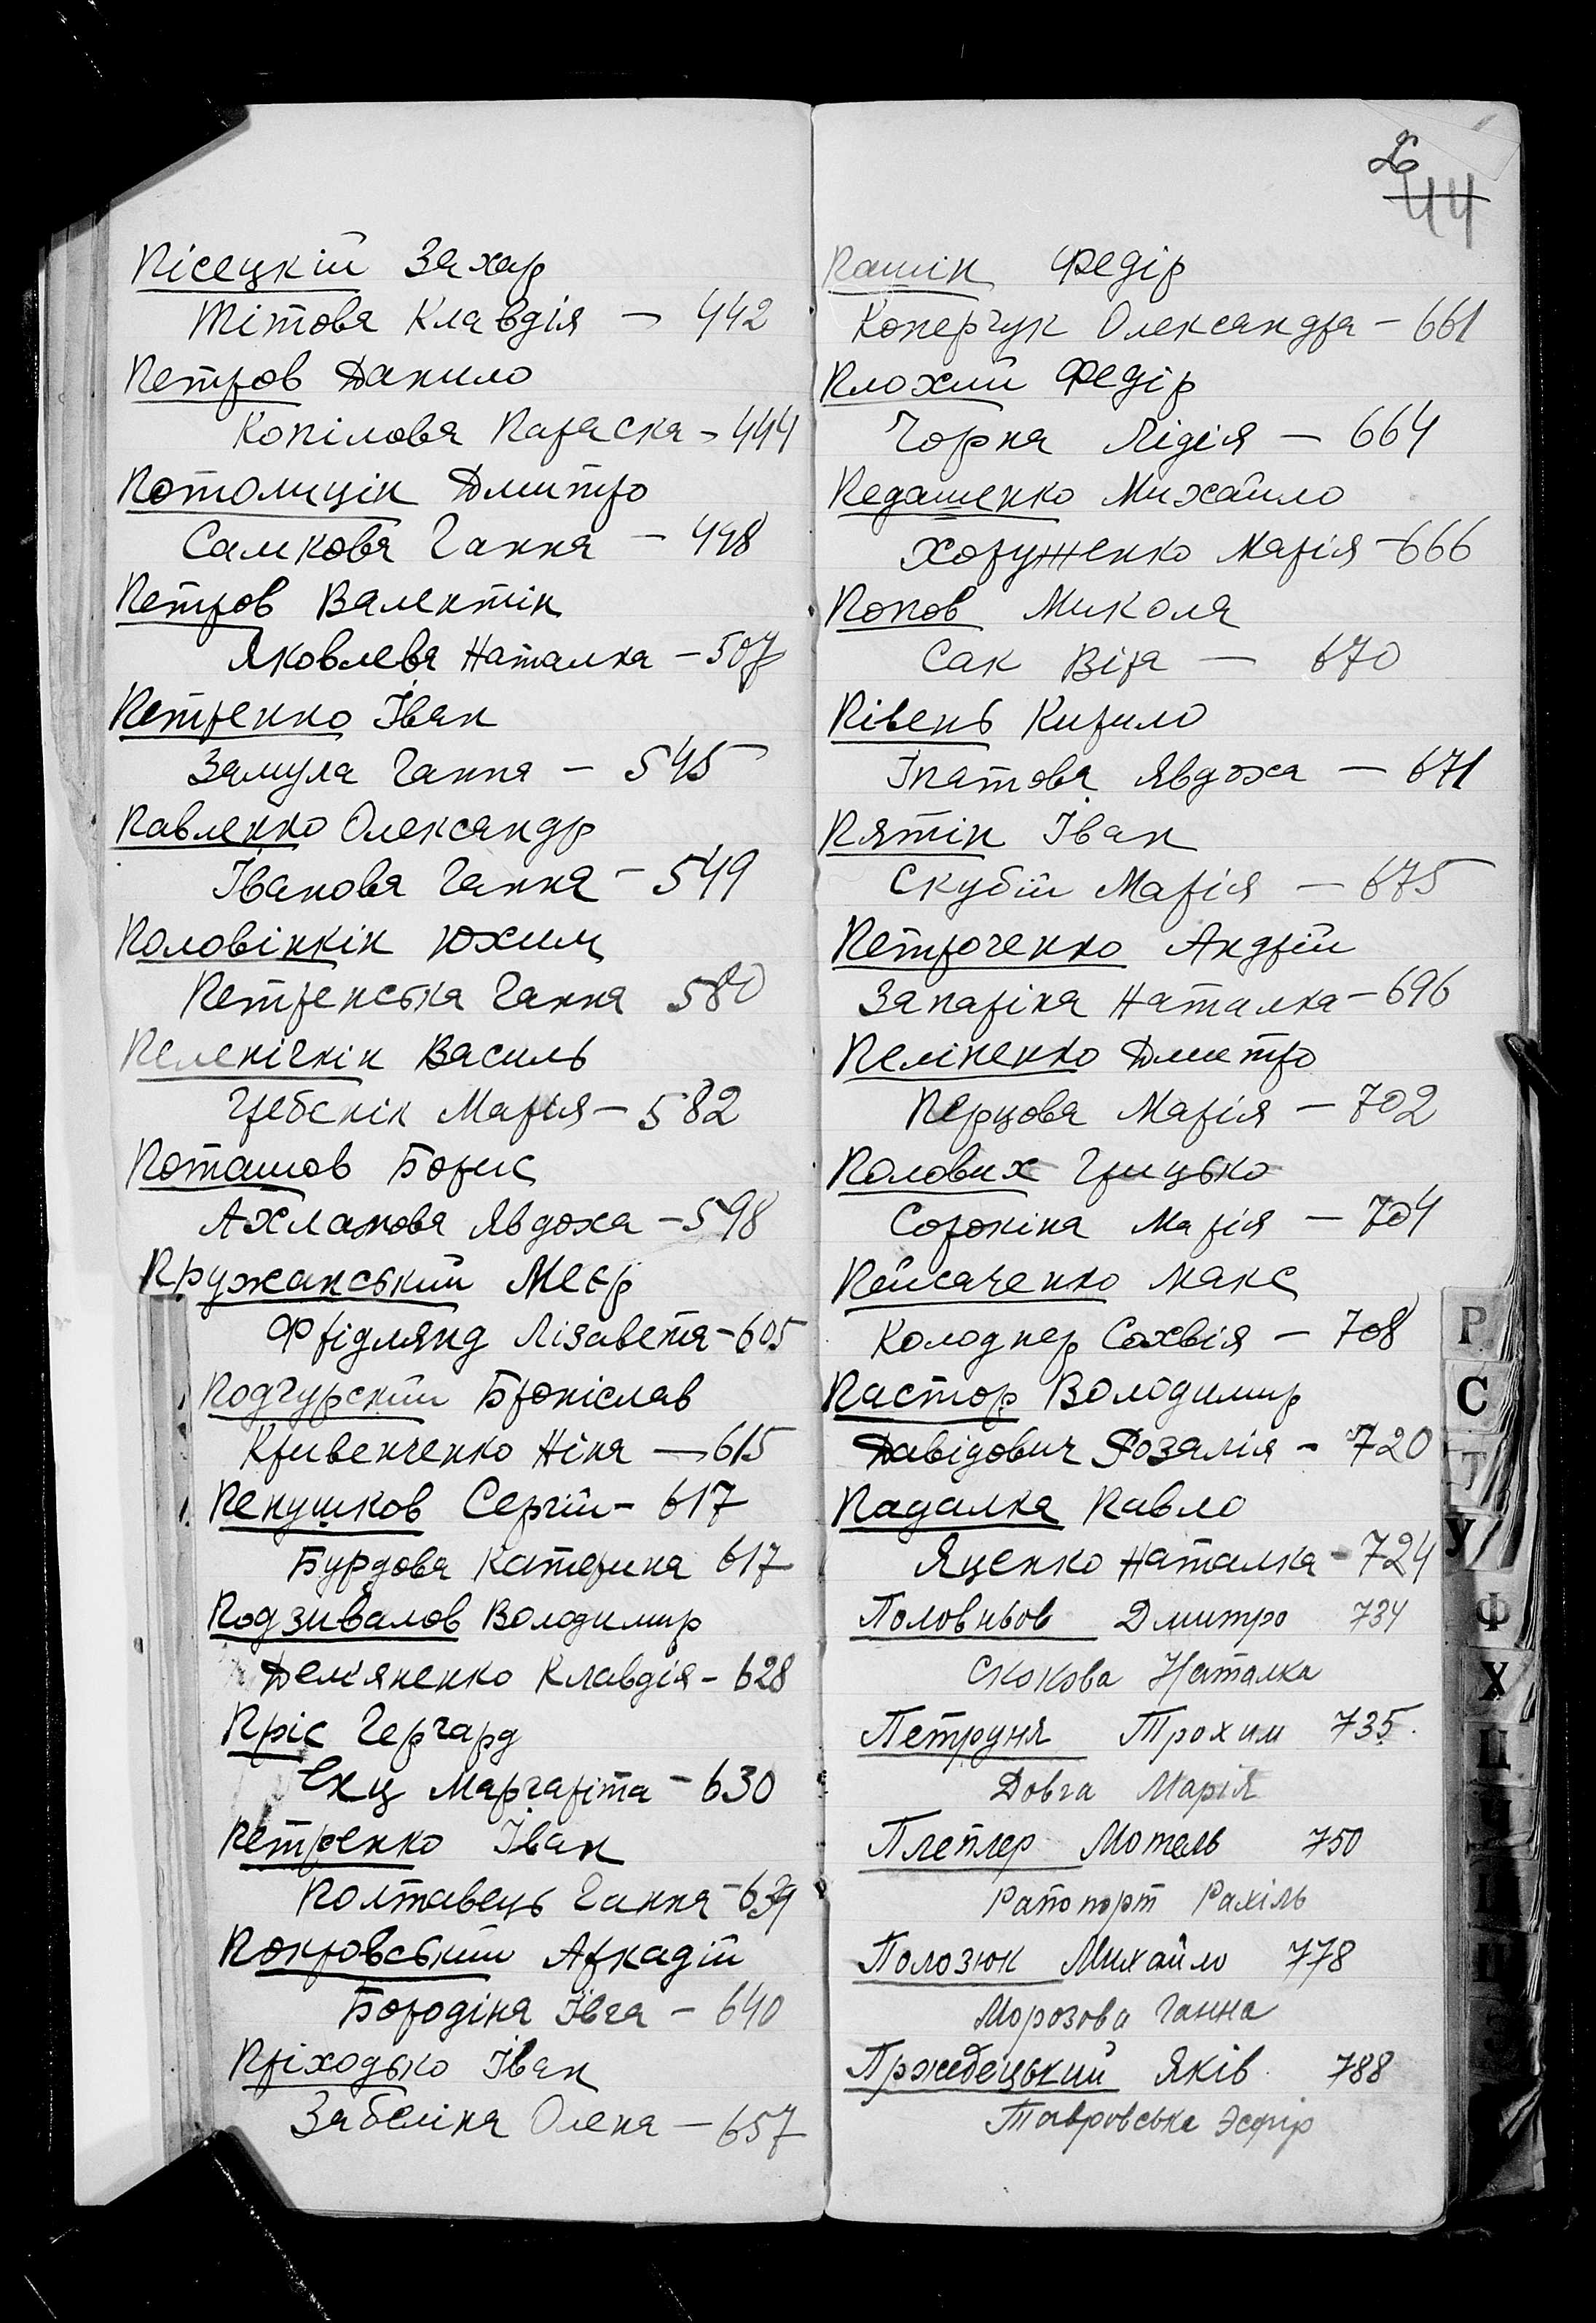 Пісецкій Захар
Тітова Клавдія — 442
Петров Данило
Копілова Параска — 444
Потоліцін Дмитро
Самкова Ганна — 498
Петров Валентін
Яковлева Наталка — 507
Петренко Іван
Замула Ганна — 545
Павленко Олександр
Іванова Ганна — 549
Половінкін Юхим
Петренська Ганна 580
Пеленічкін Василь
Гребснік Марія — 582
Поташов Борис
Ахламова Явдоха — 598
Пружанський Меєр
Фрідлянд Лізавета — 605
Подгурский Броніслав
Кривенченко Ніна — 615
Пенушков Сергій — 617
Бурдова Катерина 617
Подзивалов Володимир
Дем'яненко Клавдія — 628
Пріс Гергард
Єнц Маргаріта — 630
Петренко Іван
Полтавець Ганна — 639
Покровський Аркадій
Бородіна Івга — 640
Пріходько Іван
Забеліна Олена — 657
44
Пашін Федір
Коперчук Олександра — 661
Плохий Федір
Чорна Лідія — 664
Педашенко Михайло
Хоруженко Марія — 666
Попов Микола
Сак Віра — 670
Півень Кирило
Іпатова Явдоха — 671
Пятін Іван
Скубій Марія — 675
Петроченко Андрій
Запаріна Наталка — 696
Пеліпенко Дмитро
Перцова Марія — 702
Полових Грицько
Сорокіна Марія — 704
Пейсаченко Макс
Колоднер Сохвія — 708
Пастор Володимир
Давідович Розалія — 720
Падалка Павло
Яценко Наталка — 724
Половньов Дмитро 734
Скокова Наталка
Петруня Трохим 735.
Довга Марія
Плетлер Мотель 750
Рапопорт Рахіль
Полозюк Михайло 778
Морозова Ганна
Пржебецький Яків 788
Тавровська Эсфір
Р
С
Т
У
Ф
Х
Ц